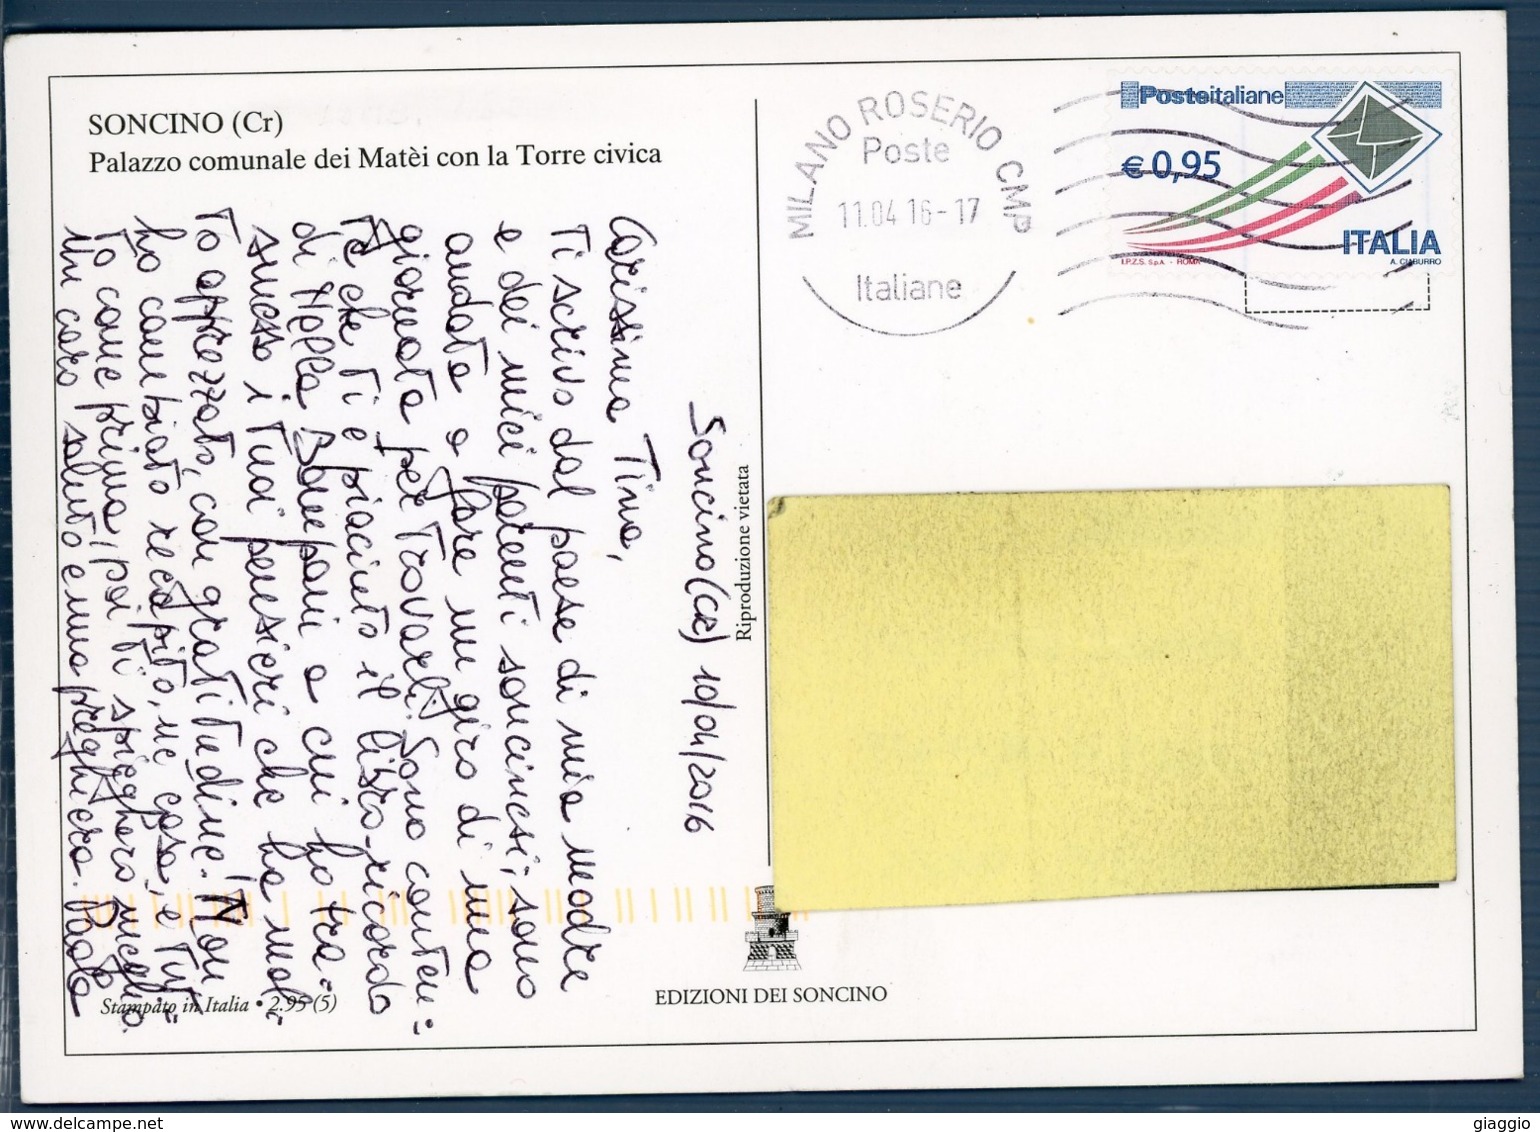 SONCINO (Cr)
Palazzo comunale dei Matèi con la Torre civica
MILANO ROSERIO CMP
Poste
11.04 16-17
Italiane
Posteitaliane
€ 0,95
ITALIA
I.P.Z.S. S.p.A. - ROMA
A. CIABURRO
Soncino (CR) 10/04/2016
Carissima Tina,
Ti scrivo dal paese di mia madre
e dei miei parenti soncinesi; sono
andata a fare un giro di una
giornata per trovarli. Sono conten=
te che ti è piaciuto il libro-ricordo
di Nella a cui ho tra=
smesso i tuoi pensieri che ha mol=
to apprezzato, con gratitudine! Non
ho cambiato recapito, ne casa, è tut=
to come prima, poi ti spiegherò meglio.
Un caro saluto e una preghiera. Paola
Riproduzione vietata
Stampato in Italia • 2.95 (5)
EDIZIONI DEI SONCINO
www.delcampe.net
giaggio